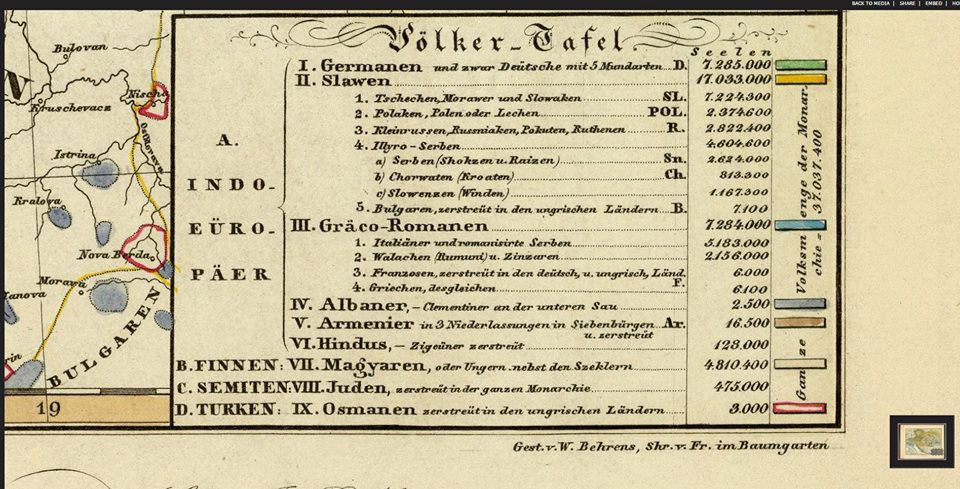 BACK TO MEDIA | SHARE | EMBED |
Völker-Tafel.
Seelen
I. Germanen und zwar Deütsche mit 5 Mundarten D. 7.285.000
II. Slawen 17.033.000
1. Tschechen, Morawer und Slowaken SL. 7.224.300
2. Polaken, Polen oder Lechen POL. 2.374.600
3. Kleinrussen, Russniaken, Pokuten, Ruthenen R. 2.822.400
4. Illyro-Serben 4.604.600
a) Serben (Shokzen u. Raizen) Sn. 2.624.000
b) Chorwaten (Kroaten) Ch. 813.300
c) Slowenzen (Winden) 1.167.300
5. Bulgaren, zerstreüt in den ungrischen Ländern B. 7.100
III. Gräco-Romanen 7.284.000
1. Italiäner und romanisirte Serben 5.183.000
2. Walachen (Rumuni) u. Zinzaren 2.156.000
3. Franzosen, zerstreüt in den deütsch, u. ungrisch, Länd. F. 6.000
4. Griechen, desgleichen 6.100
IV. Albaner, – Clementiner an der unteren Sau 2.500
V. Armenier in 3 Niederlassungen in Siebenbürgen Ar. 16.500
u. zerstreüt
VI. Hindus, – Zigeüner zerstreüt 128.000
A.
INDO-
EÜRO-
PÄER
B. FINNEN: VII. Magyaren, oder Ungern nebst den Szeklern 4.810.400
C. SEMITEN: VIII. Juden, zerstreüt in der ganzen Monarchie 475.000
D. TURKEN: IX. Osmanen zerstreüt in den ungrischen Ländern 3.000
Ganze Volksmenge der Monar-
chie = 37.037.400
Bulovan
Nischa
Kruschevacz
Istrina
Kralova
Nova Berda
Morava
BULGAREN
19
Gest. v. W. Behrens, Shr. v. Fr. im Baumgarten